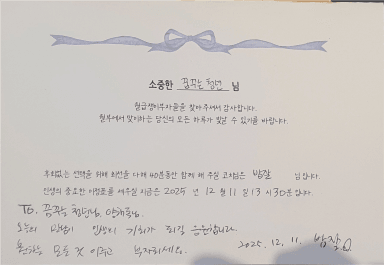 소중한 꿈꾸는 청년 님
찾아주셔서 감사합니다.
맞이하는 당신의 모든 하루가 빛날 수 있기를 바랍니다.
후회없는 선택을 위해 최선을 다해 40분동안 함께 해 주실 고사님은 밤잘 님입니다.
인생의 중요한 이정표를 세우실 지금은 2025 년 12 월 11 일 13 시 30 분입니다.
To. 꿈꾸는 청년님
오늘의 만남이 인생의 기회가 되길 응원합니다.
원하는 모든 것 이루고 부자되세요. 2025. 12. 11. 밤잘